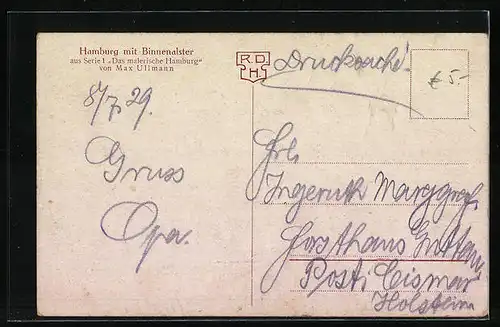 Hamburg mit Binnenalster
aus Serie I „Das malerische Hamburg“
von Max Ullmann
R.D.
H
Drucksache!
€ 5.-
8/7 29.
Gruss
Opa.
Frl.
Ingeruth Marggraf
Forsthaus
Post: Cismar
Holstein